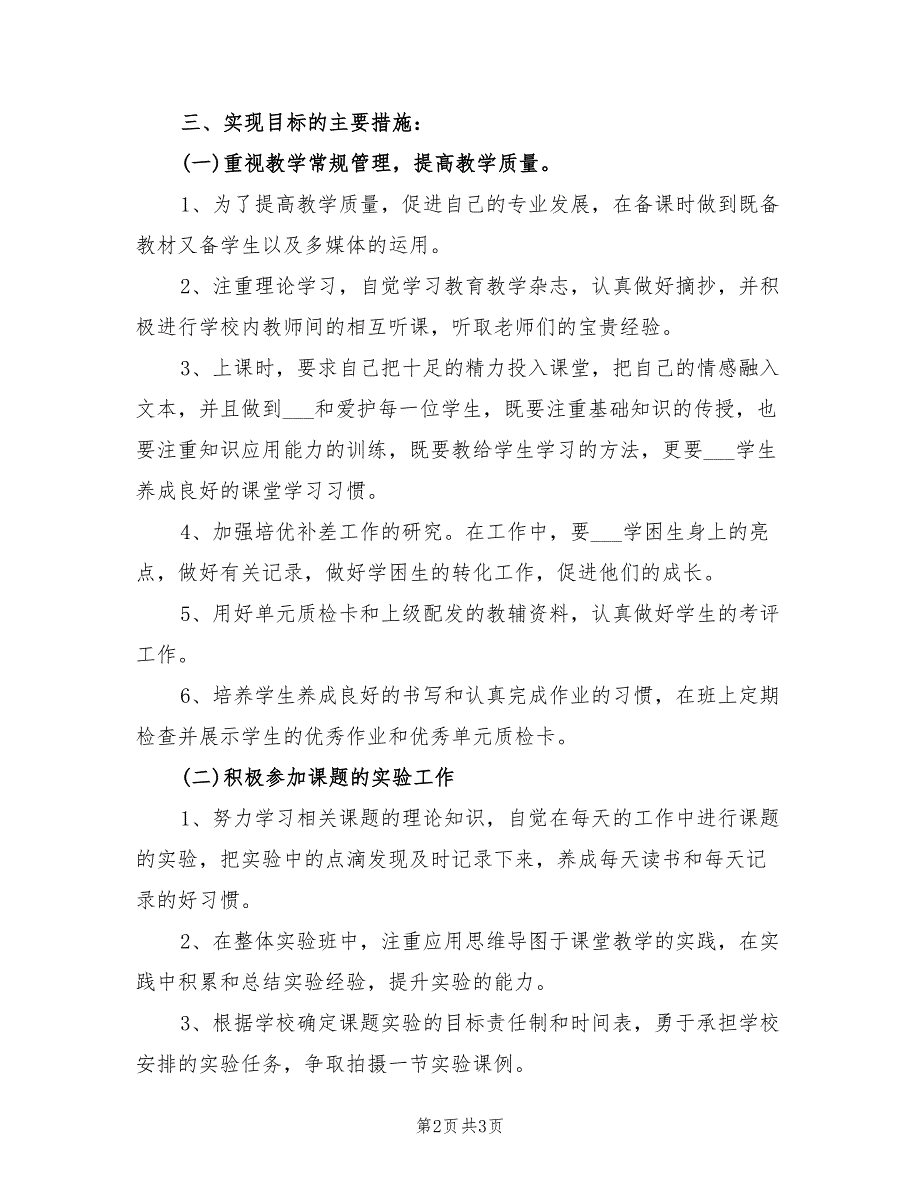 三、实现目标的主要措施：
(一)重视教学常规管理，提高教学质量。
1、为了提高教学质量，促进自己的专业发展，在备课时做到既备
教材又备学生以及多媒体的运用。
2、注重理论学习，自觉学习教育教学杂志，认真做好摘抄，并积
极进行学校内教师间的相互听课，听取老师们的宝贵经验。
3、上课时，要求自己把十足的精力投入课堂，把自己的情感融入
文本，并且做到___和爱护每一位学生，既要注重基础知识的传授，也
要注重知识应用能力的训练，既要教给学生学习的方法，更要___学生
养成良好的课堂学习习惯。
4、加强培优补差工作的研究。在工作中，要___学困生身上的亮
点，做好有关记录，做好学困生的转化工作，促进他们的成长。
5、用好单元质检卡和上级配发的教辅资料，认真做好学生的考评
工作。
6、培养学生养成良好的书写和认真完成作业的习惯，在班上定期
检查并展示学生的优秀作业和优秀单元质检卡。
(二)积极参加课题的实验工作
1、努力学习相关课题的理论知识，自觉在每天的工作中进行课题
的实验，把实验中的点滴发现及时记录下来，养成每天读书和每天记
录的好习惯。
2、在整体实验班中，注重应用思维导图于课堂教学的实践，在实
践中积累和总结实验经验，提升实验的能力。
3、根据学校确定课题实验的目标责任制和时间表，勇于承担学校
安排的实验任务，争取拍摄一节实验课例。
第2页 共3页